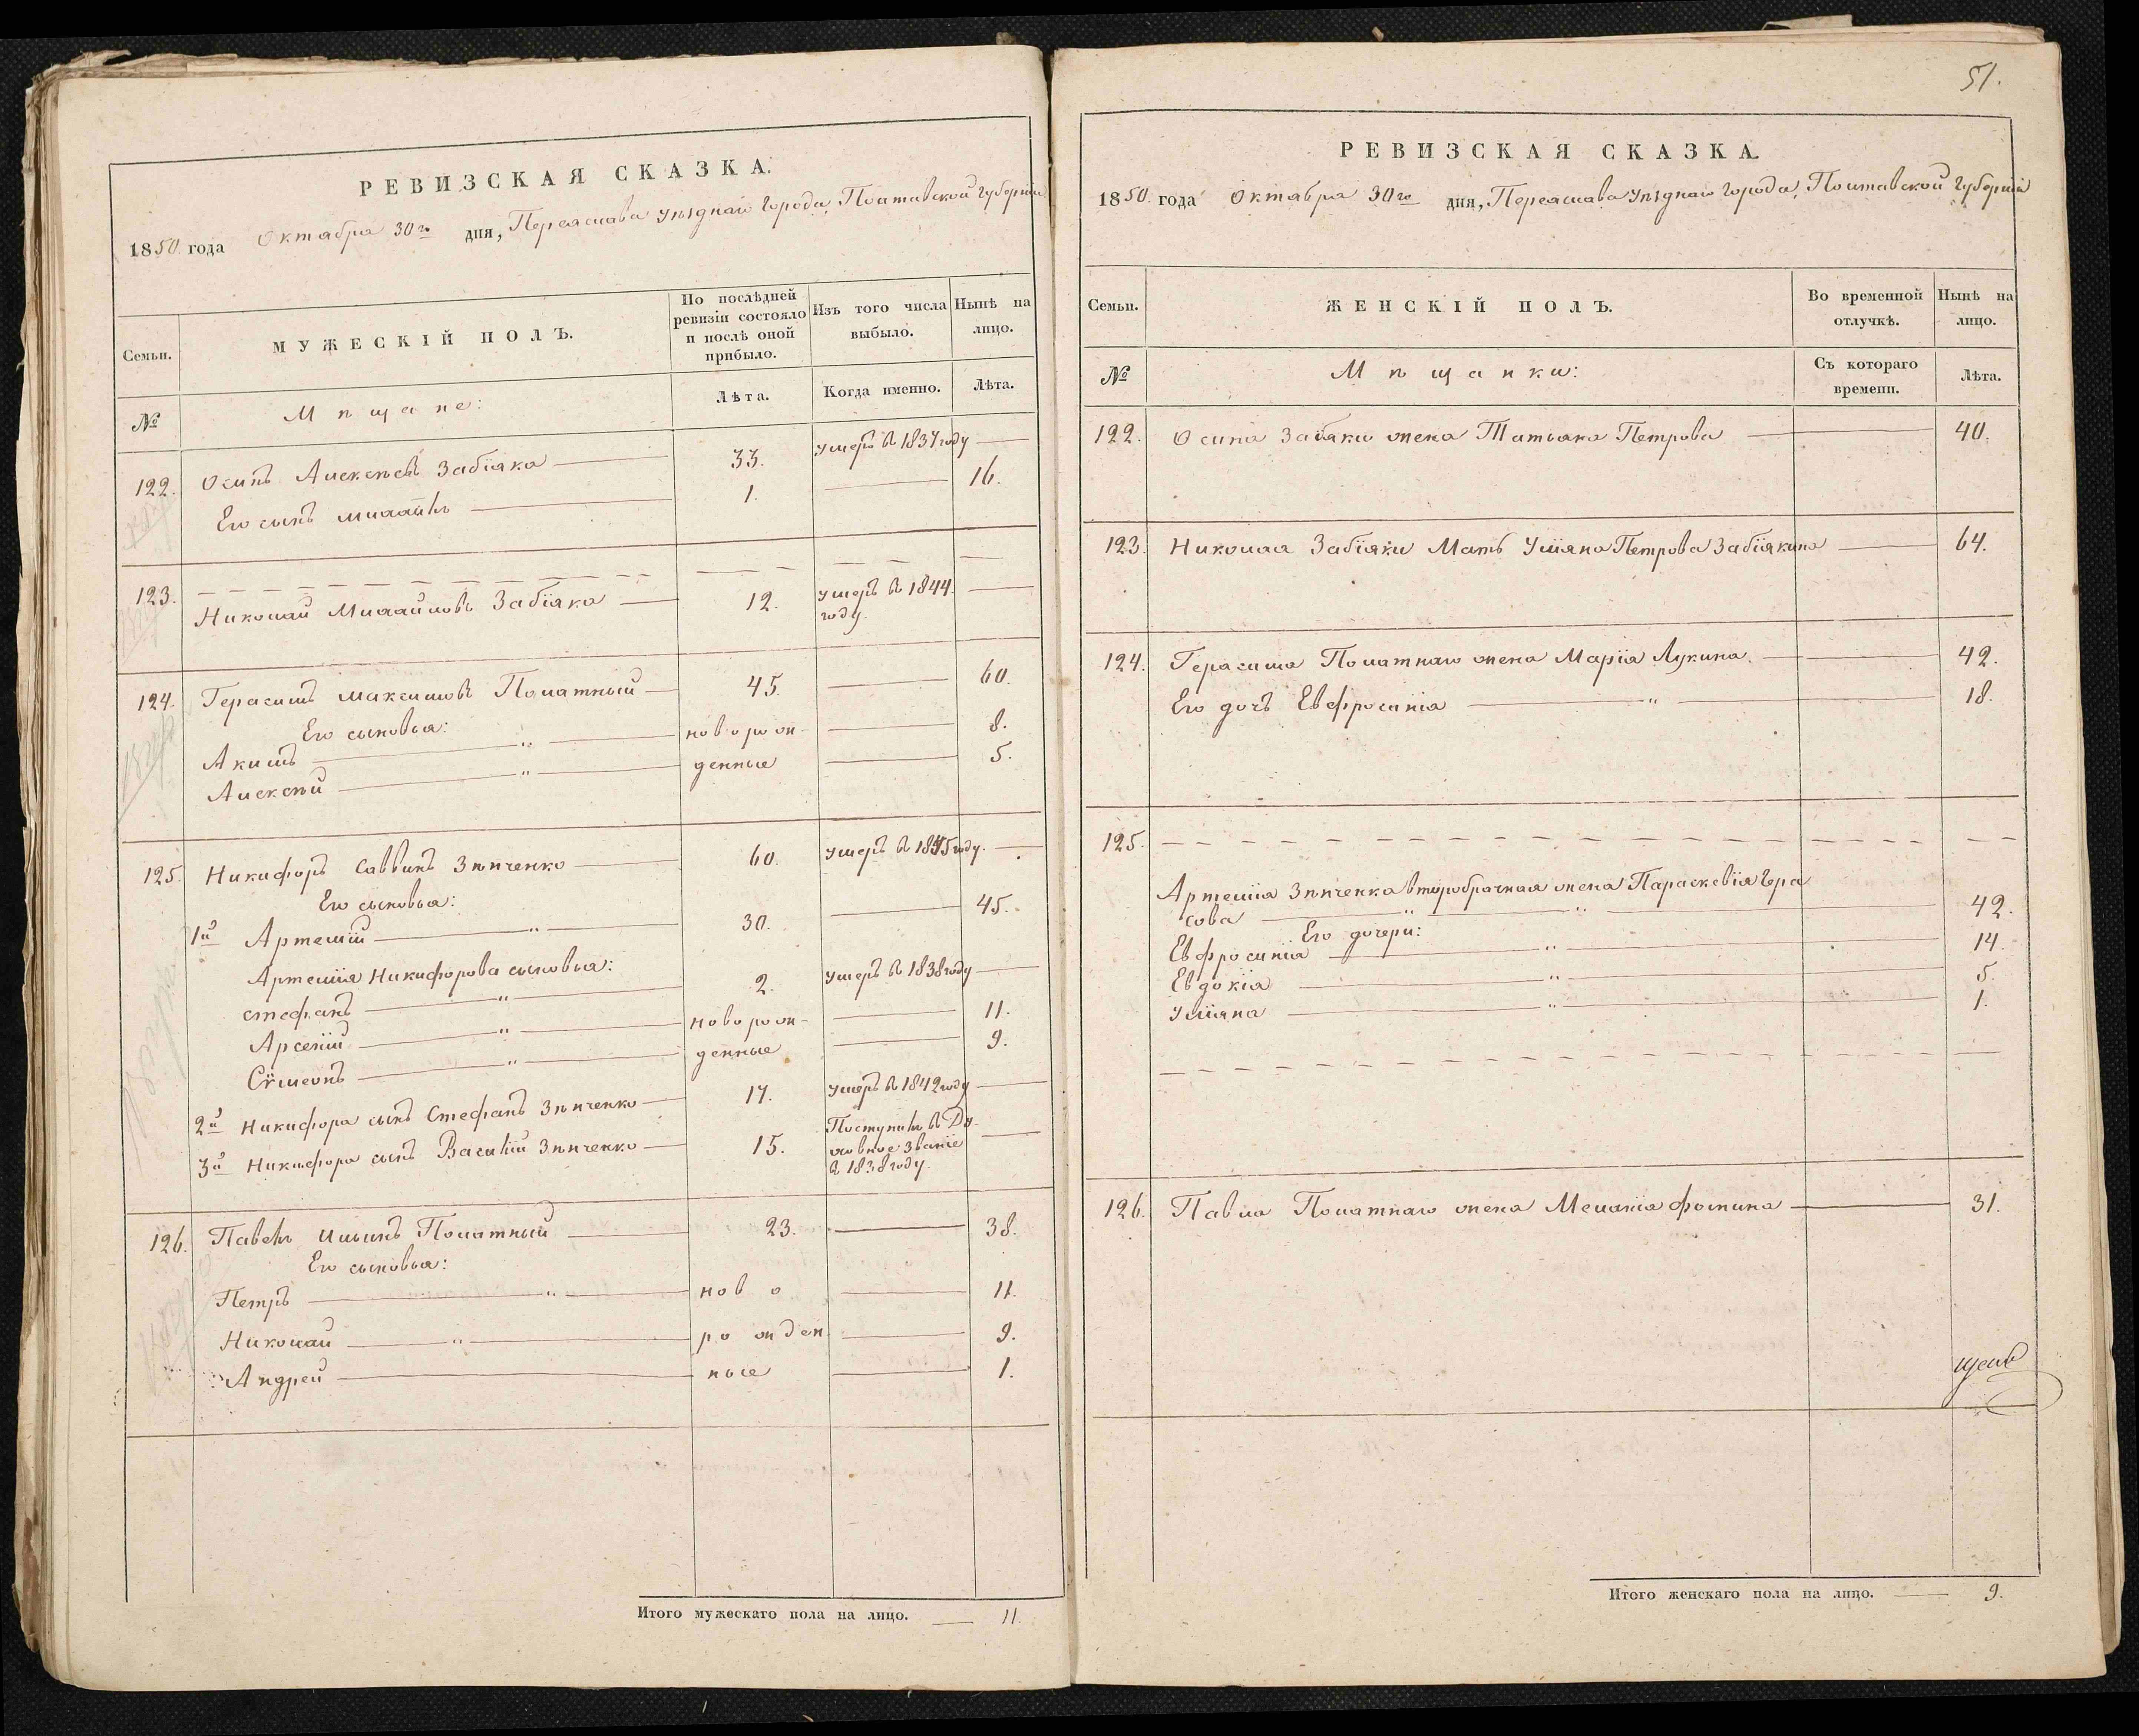 РЕВИЗСКАЯ СКАЗКА.
1850 года Октября 30го дня, Переяслава уѣзднаго города, Полтавской губерніи
Семьи.
МУЖЕСКІЙ ПОЛЪ.
По послѣдней ревизіи состояло и послѣ оной прибыло.
Изъ того числа выбыло.
Нынѣ на лицо.
№
Мѣщане:
Лѣта.
Когда именно.
Лѣта.
122. Осипъ Алексѣевъ Забіяка — 33. умеръ въ 1837 году —
Его сынъ михайлъ — 1. — 16.
123. — — — — — — — — —
Николай Михайловъ Забіяка — 12. умеръ въ 1844. году. —
124. Герасимъ максимовъ Полатный — 45. — 60.
Его сыновья:
Акимъ — „ — новорож- — 8.
Алексѣй — „ — денные — 5.
125. Никифоръ саввинъ Зѣнченко — 60. умеръ въ 1845 году. —
Его сыновья:
1й Артемій — „ — 30. — 45.
Артемія Никифорова сыновья:
стефанъ — „ — 2. умеръ въ 1838 году —
Арсеній — „ — новорож- — 11.
Сѵмеонъ — „ — денные — 9.
2й Никифора сынъ Стефанъ Зѣнченко — 17. умеръ въ 1842 году —
3й Никифора сынъ Василій Зѣнченко — 15. Поступилъ въ Духовное Званіе въ 1838 году. —
126. Павелъ Ильинъ Полатный — 23. — 38.
Его сыновья:
Петръ — „ — ново — 11.
Николай — „ — рожден — 9.
Андрей — ные — 1.
Итого мужескаго пола на лицо. — 11.
51.
РЕВИЗСКАЯ СКАЗКА.
1850 года Октября 30го дня, Переяслава уѣзднаго города, Полтавской губерніи
Семьи.
ЖЕНСКІЙ ПОЛЪ.
Во временной отлучкѣ.
Нынѣ на лицо.
№
Мѣщанки:
Съ котораго времени.
Лѣта.
122. Осипа Забіяки жена Татьяна Петрова — 40.
123. Николая Забіяки Мать Уліяна Петрова Забіякина — 64.
124. Герасима Полатнаго жена Марія Лукина. — 42.
Его дочь Евфросинія — „ — 18.
125. — — — — — — — — —
Артемія Зѣнченка второбрачная жена Параскевія Гера
сова — „ — „ — 42.
Его дочери:
Евфросинія — „ — 14.
Евдокія — „ — 5.
Уліяна — „ — 1.
— — — — — — — — —
126. Павла Полатнаго жена Меланія фомина — 31.
Итого женскаго пола на лицо. — 9.